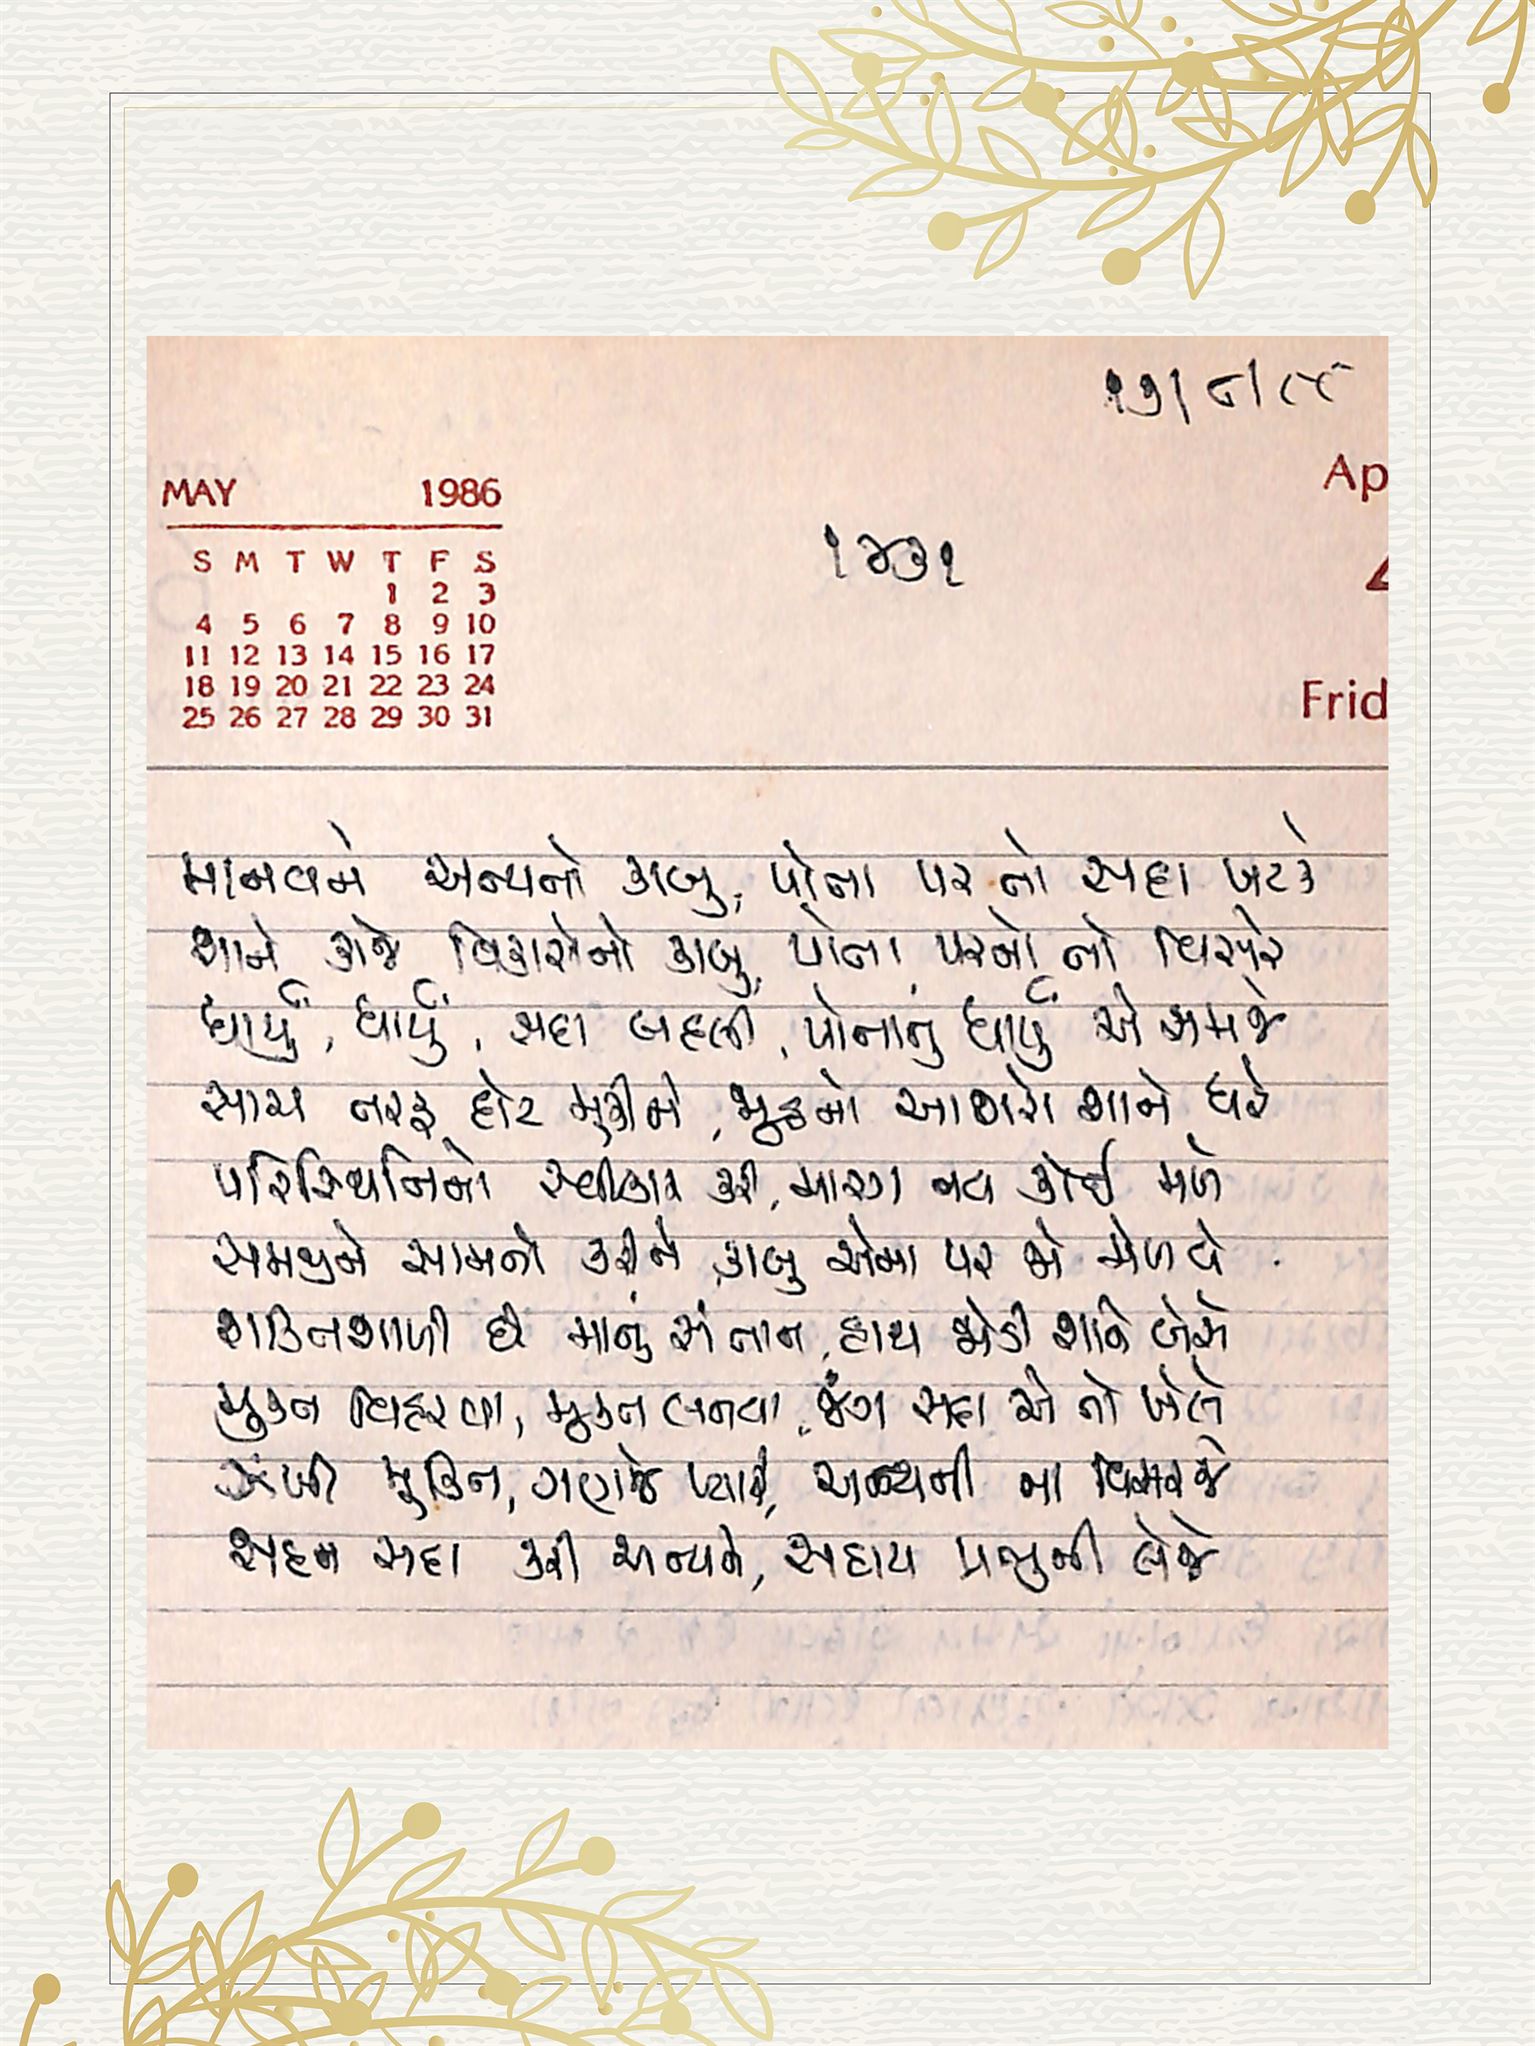 ૧૭/૮/૮૮
Ap
MAY 1986
૧૪૩૧
S M T W T F S
1 2 3
4 5 6 7 8 9 10
11 12 13 14 15 16 17
18 19 20 21 22 23 24
25 26 27 28 29 30 31
Frid
માનવને અન્યનો કાબુ, પોતા પર તો સદા ખટકે
શાને કાજે વિકારોનો કાબુ, પોતા પરનો તો વિસરે
ધાર્યું, ધાર્યું, સદા બદલી, પોતાનું ધાર્યું એ સમજે
સાચ તરફ દોટ મૂકીને, જૂઠનો આશરો શાને ધરે
પરિસ્થિતિનો સ્વીકાર કરી, મારગ નવ કોઈ મળે
સમજીને સામનો કરીને, કાબુ એમા પર એ મેળવે.
શક્તિશાળી છે માનું સંતાન, હાથ જોડી શાને બેસે
મુક્ત વિહરવા, મુક્ત બનવા, જંગ સદા એ તો ખેલે
ઝંખી મુક્તિ, ગણજે પ્યારે, અન્યની ના વિસરજે
સહન સદા કરી અન્યને, સહાય પ્રભુની લેજે